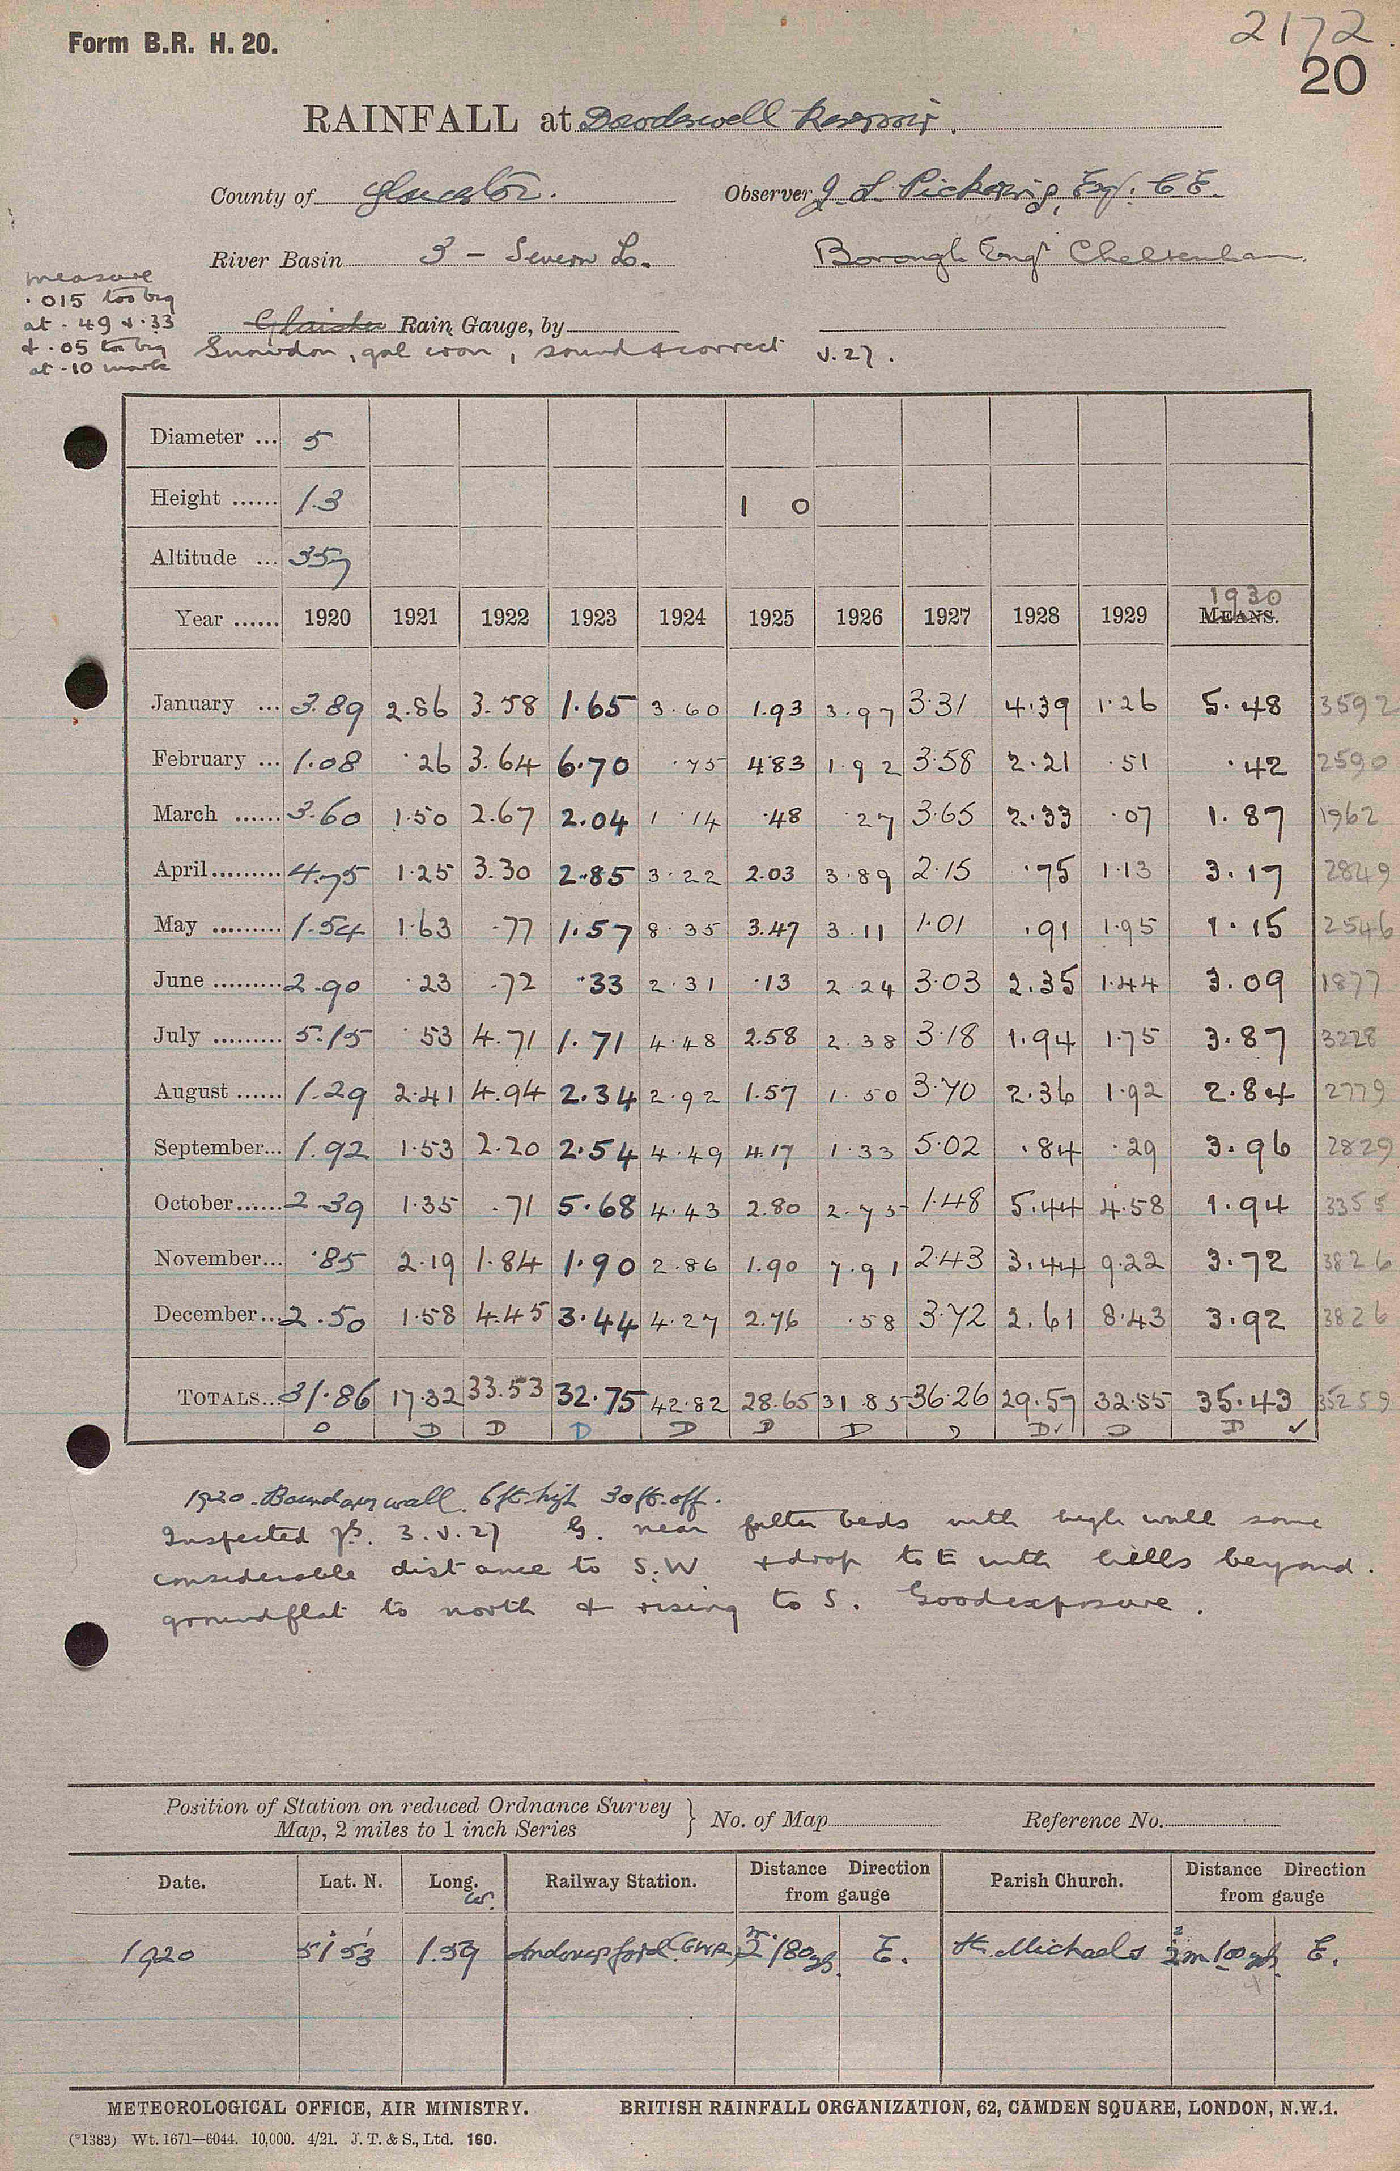 2172
Form B.R. H. 20.
20
RAINFALL at Dowdeswell Reservoir.
County of Gloucester. Observer J. S. Pickering, Esq. C.E.
River Basin 3 - Severn L. Borough Eng Cheltenham
measure
.015 too big
at .49 & .33
& .05 too big
at .10 mark
Glaisher Rain Gauge, by
Snowdon, gal iron, sound & correct v.27.
Diameter ... 5
Height ...... 1.3 1 0
Altitude ... 357
1930
Year ...... 1920 1921 1922 1923 1924 1925 1926 1927 1928 1929 MEANS.
January ... 3.89 2.86 3.58 1.65 3.60 1.93 3.97 3.31 4.39 1.26 5.48 3592
February ... 1.08 .26 3.64 6.70 .75 4.83 1.92 3.58 2.21 .51 .42 2590
March ...... 3.60 1.50 2.67 2.04 1.14 .48 .27 3.65 2.33 .07 1.87 1962
April ......... 4.75 1.25 3.30 2.85 3.22 2.03 3.89 2.15 .75 1.13 3.17 2849
May ......... 1.54 1.63 .77 1.57 8.35 3.47 3.11 1.01 .91 1.95 1.15 2546
June ......... 2.90 .23 .72 .33 2.31 .13 2.24 3.03 2.35 1.44 3.09 1877
July ......... 5.15 .53 4.71 1.71 4.48 2.58 2.38 3.18 1.94 1.75 3.87 3228
August ...... 1.29 2.41 4.94 2.34 2.92 1.57 1.50 3.70 2.36 1.92 2.84 2779
September... 1.92 1.53 2.20 2.54 4.49 4.17 1.33 5.02 .84 .29 3.96 2829
October...... 2.39 1.35 .71 5.68 4.43 2.80 2.75 1.48 5.44 4.58 1.94 3355
November... .85 2.19 1.84 1.90 2.86 1.90 7.91 2.43 3.44 9.22 3.72 3826
December... 2.50 1.58 4.45 3.44 4.27 2.76 .58 3.72 2.61 8.43 3.92 3826
TOTALS... 31.86 17.32 33.53 32.75 42.82 28.65 31.85 36.26 29.57 32.55 35.43 35259
D D D D D D D D D ✓ D D ✓
1920. Boundary wall 6ft high 30ft. off.
Inspected 3.v.27 G. near filter beds with high wall some
considerable distance to S.W & drop to E with hills beyond.
ground flat to north & rising to S. Good exposure.
Position of Station on reduced Ordnance Survey
Map, 2 miles to 1 inch Series } No. of Map Reference No.
Date. Lat. N. Long. W. Railway Station. Distance Direction from gauge Parish Church. Distance Direction from gauge
1920 51 53 1.59 Andoversford (GWR) 2m 180yds. E. St. Michaels 2m 100 yds. E.
METEOROLOGICAL OFFICE, AIR MINISTRY. BRITISH RAINFALL ORGANIZATION, 62, CAMDEN SQUARE, LONDON, N.W.1.
(*1383) Wt. 1671—6044. 10,000. 4/21. J. T. & S., Ltd. 160.